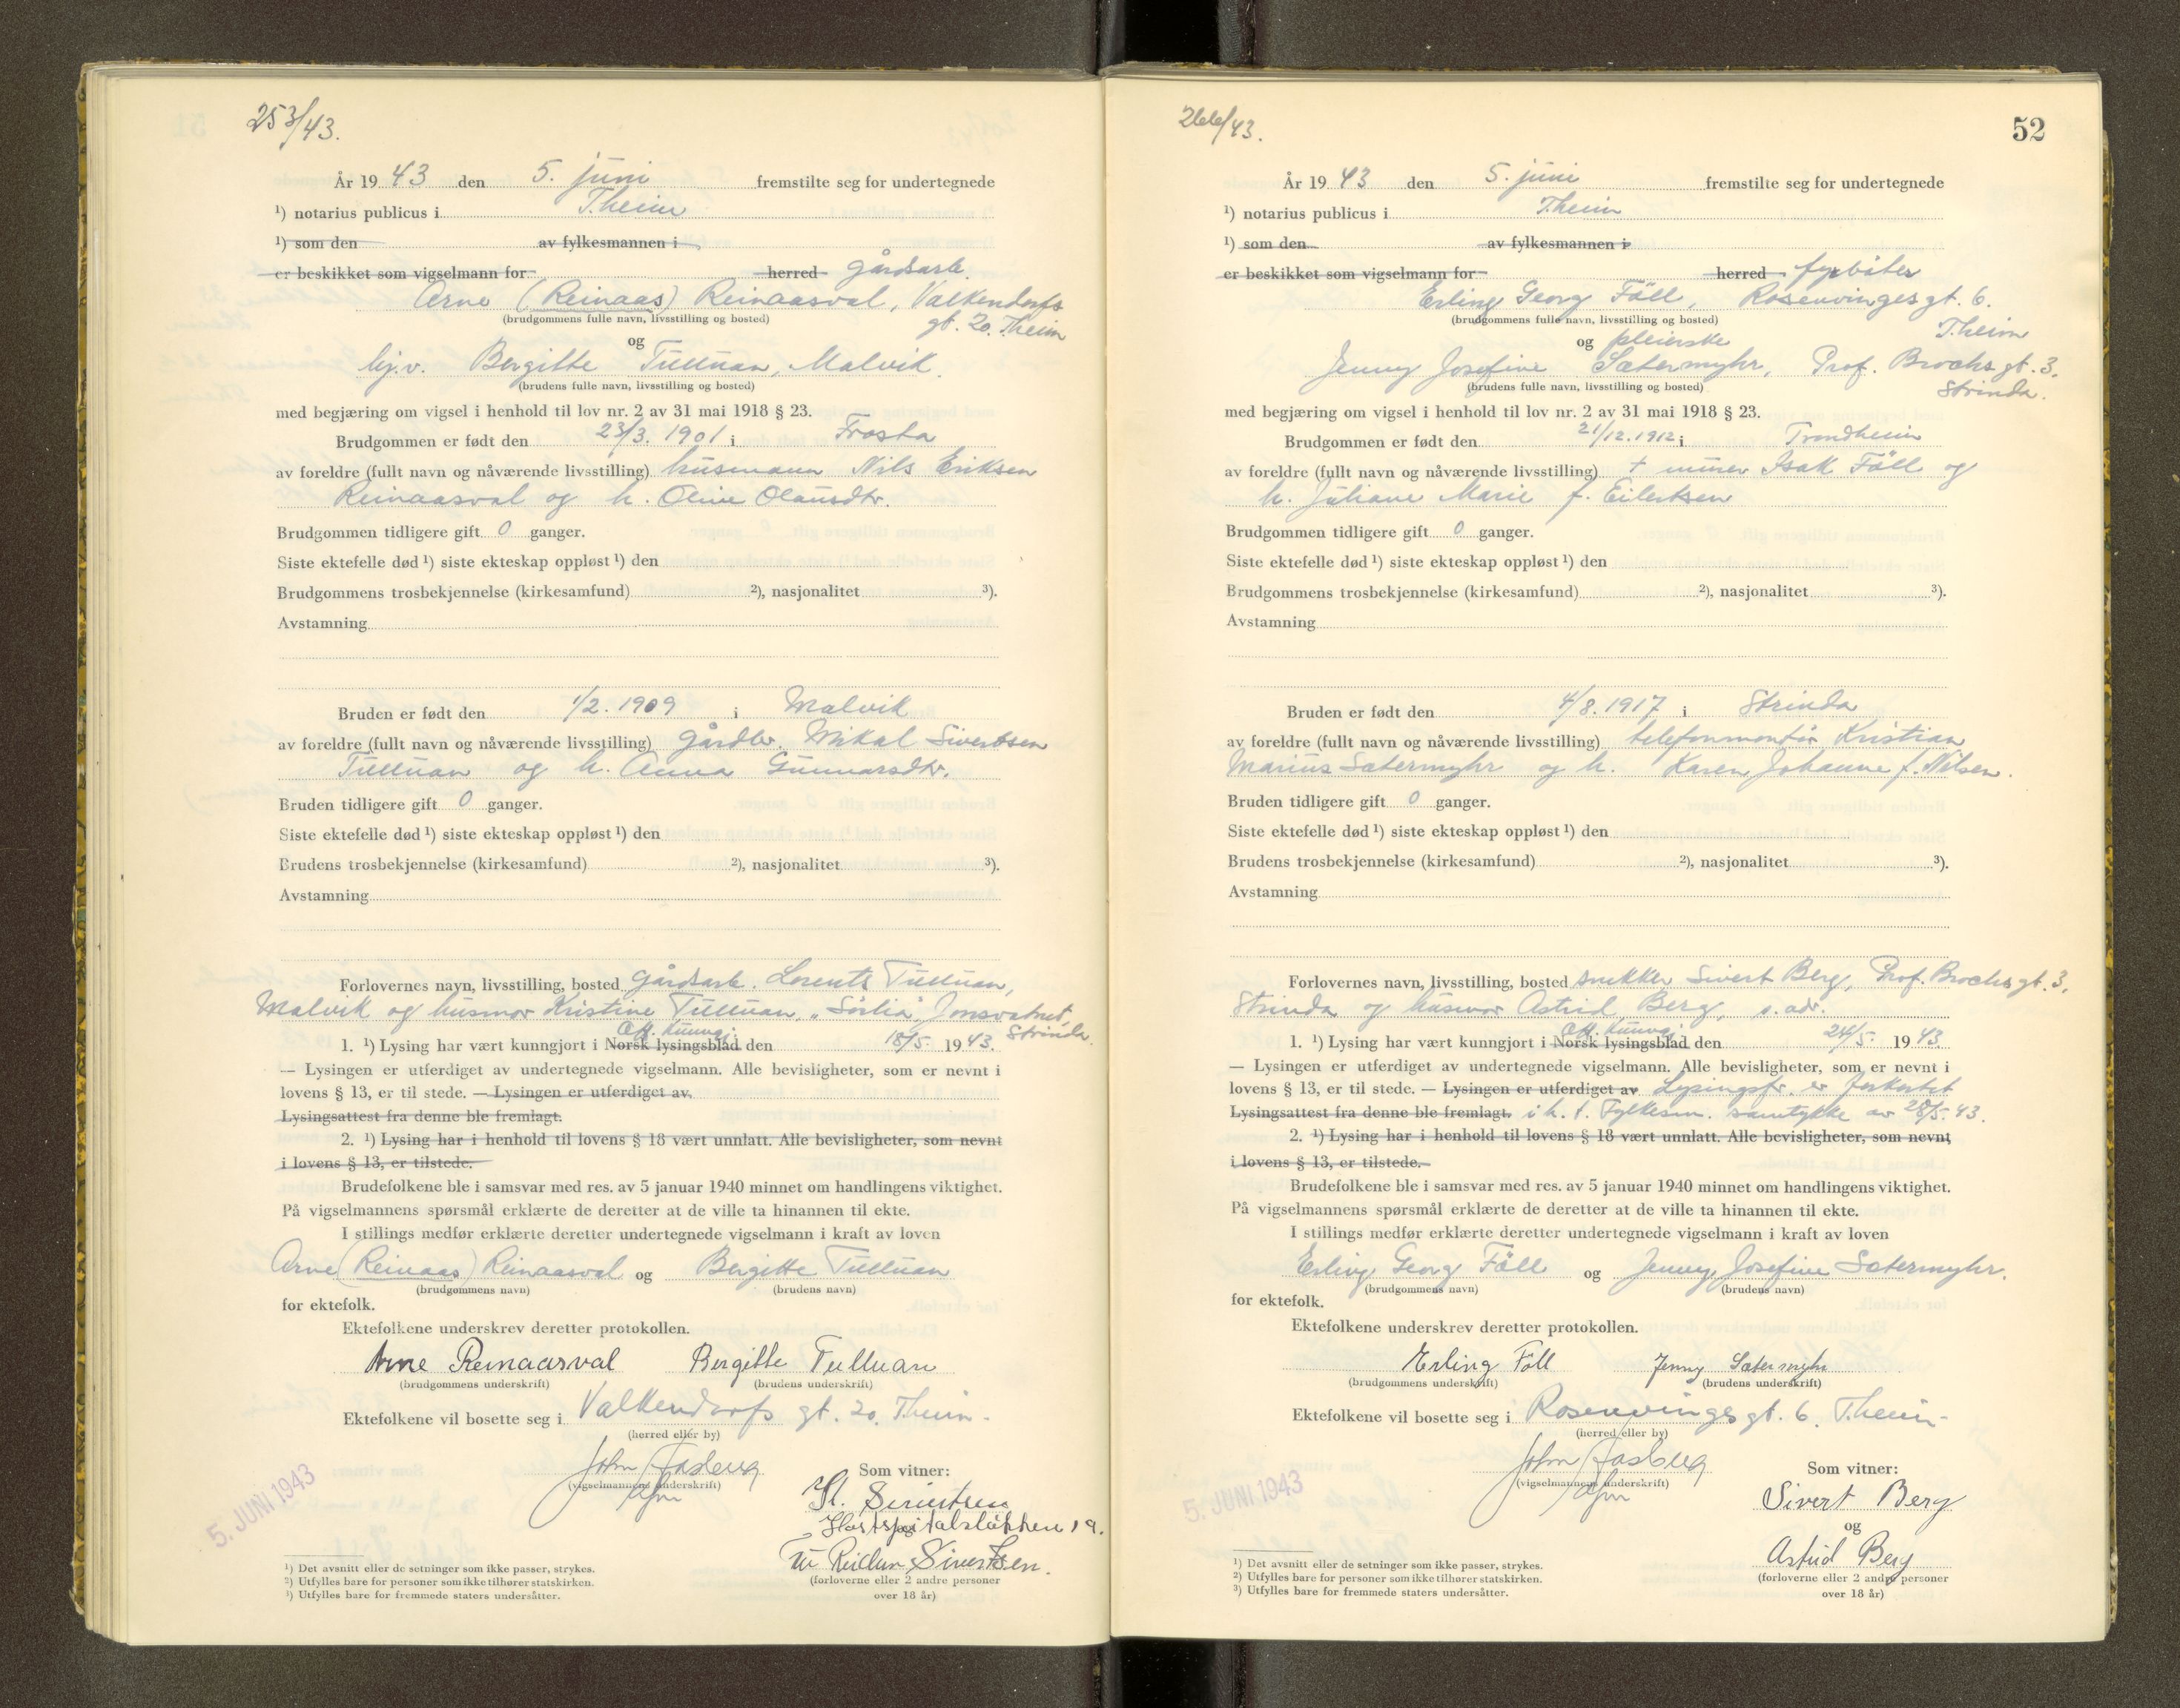 253/43.
År 19 43 den 5. juni fremstilte seg for undertegnede
¹) notarius publicus i T.heim
¹) som den av fylkesmannen i
er beskikket som vigselmann for herred gårdsarb.
Arne (Reinaas) Reinaasval, Valkendorfs
(brudgommens fulle navn, livsstilling og bosted) gt. 20. Theim
og
hj.v. Bergitte Tulluan, Malvik.
(brudens fulle navn, livsstilling og bosted)
med begjæring om vigsel i henhold til lov nr. 2 av 31 mai 1918 § 23.
Brudgommen er født den 23/3. 1901 i Frosta
av foreldre (fullt navn og nåværende livsstilling) husmann Nils Eriksen
Reinaasval og h. Oline Olausdtr.
Brudgommen tidligere gift 0 ganger.
Siste ektefelle død ¹) siste ekteskap oppløst ¹) den
Brudgommens trosbekjennelse (kirkesamfund) ²), nasjonalitet ³).
Avstamning
Bruden er født den 1/2. 1909 i Malvik
av foreldre (fullt navn og nåværende livsstilling) gårdbr. Mikal Sivertsen
Tulluan og h. Anna Gunnarsdtr.
Bruden tidligere gift 0 ganger.
Siste ektefelle død ¹) siste ekteskap oppløst ¹) den
Brudens trosbekjennelse (kirkesamfund) ²), nasjonalitet ³).
Avstamning
Forlovernes navn, livsstilling, bosted gårdsarb. Lorents Tulluan,
Malvik og husmor Kristine Tulluan, "Sørlia", Jonsvatnet,
Off. kunngj. Strinda.
1. ¹) Lysing har vært kunngjort i Norsk lysingsblad den 18/5. 19 43.
— Lysingen er utferdiget av undertegnede vigselmann. Alle bevisligheter, som er nevnt i
lovens § 13, er til stede. — Lysingen er utferdiget av
Lysingsattest fra denne ble fremlagt.
2. ¹) Lysing har i henhold til lovens § 18 vært unnlatt. Alle bevisligheter, som nevnt
i lovens § 13, er tilstede.
Brudefolkene ble i samsvar med res. av 5 januar 1940 minnet om handlingens viktighet.
På vigselmannens spørsmål erklærte de deretter at de ville ta hinannen til ekte.
I stillings medfør erklærte deretter undertegnede vigselmann i kraft av loven
Arne (Reinaas) Reinaasval og Bergitte Tulluan
(brudgommens navn) (brudens navn)
for ektefolk.
Ektefolkene underskrev deretter protokollen.
Arne Reinaasval Bergitte Tulluan
(brudgommens underskrift) (brudens underskrift)
Ektefolkene vil bosette seg i Valkendorfs gt. 20. Theim.
(herred eller by)
John Aasberg
(vigselmannens underskrift)
Som vitner:
5. JUNI 1943
Sivertsen
19.
Reidun Sivertsen.
(forloverne eller 2 andre personer
over 18 år)
¹) Det avsnitt eller de setninger som ikke passer, strykes.
²) Utfylles bare for personer som ikke tilhører statskirken.
³) Utfylles bare for fremmede staters undersåtter.
266/43.
52
År 19 43 den 5. juni fremstilte seg for undertegnede
¹) notarius publicus i T.heim
¹) som den av fylkesmannen i
er beskikket som vigselmann for herred fyrbøter
Erling Georg Föll, Rosenvinges gt. 6.
(brudgommens fulle navn, livsstilling og bosted) T.heim
og pleierske
Jenny Josefine Sætermyhr, Prof. Brochs gt. 3.
(brudens fulle navn, livsstilling og bosted) Strinda.
med begjæring om vigsel i henhold til lov nr. 2 av 31 mai 1918 § 23.
Brudgommen er født den 21/12. 1912 i Trondheim
av foreldre (fullt navn og nåværende livsstilling) + murer Isak Föll og
h. Juliane Marie f. Eilertsen
Brudgommen tidligere gift 0 ganger.
Siste ektefelle død ¹) siste ekteskap oppløst ¹) den
Brudgommens trosbekjennelse (kirkesamfund) ²), nasjonalitet ³).
Avstamning
Bruden er født den 4/8. 1917 i Strinda
av foreldre (fullt navn og nåværende livsstilling) telefonmontør Kristian
Marius Sætermyhr og h. Karen Johanne f. Nilsen.
Bruden tidligere gift 0 ganger.
Siste ektefelle død ¹) siste ekteskap oppløst ¹) den
Brudens trosbekjennelse (kirkesamfund) ²), nasjonalitet ³).
Avstamning
Forlovernes navn, livsstilling, bosted snekker Sivert Berg, Prof. Brochs gt. 3.
Strinda og husmor Astrid Berg, s. adr.
Off. kunngj.
1. ¹) Lysing har vært kunngjort i Norsk lysingsblad den 24/5. 19 43
— Lysingen er utferdiget av undertegnede vigselmann. Alle bevisligheter, som er nevnt i
lovens § 13, er til stede. — Lysingen er utferdiget av Lysingsfr. er forkortet
Lysingsattest fra denne ble fremlagt. i h. t. Fylkesm. samtykke av 28/5. 43.
2. ¹) Lysing har i henhold til lovens § 18 vært unnlatt. Alle bevisligheter, som nevnt
i lovens § 13, er tilstede.
Brudefolkene ble i samsvar med res. av 5 januar 1940 minnet om handlingens viktighet.
På vigselmannens spørsmål erklærte de deretter at de ville ta hinannen til ekte.
I stillings medfør erklærte deretter undertegnede vigselmann i kraft av loven
Erling Georg Föll og Jenny Josefine Sætermyhr.
(brudgommens navn) (brudens navn)
for ektefolk.
Ektefolkene underskrev deretter protokollen.
Erling Föll Jenny Sætermyhr
(brudgommens underskrift) (brudens underskrift)
Ektefolkene vil bosette seg i Rosenvinges gt. 6. T.heim.
(herred eller by)
John Aasberg
(vigselmannens underskrift)
Som vitner:
5. JUNI 1943
Sivert Berg
og
Astrid Berg
(forloverne eller 2 andre personer
over 18 år)
¹) Det avsnitt eller de setninger som ikke passer, strykes.
²) Utfylles bare for personer som ikke tilhører statskirken.
³) Utfylles bare for fremmede staters undersåtter.